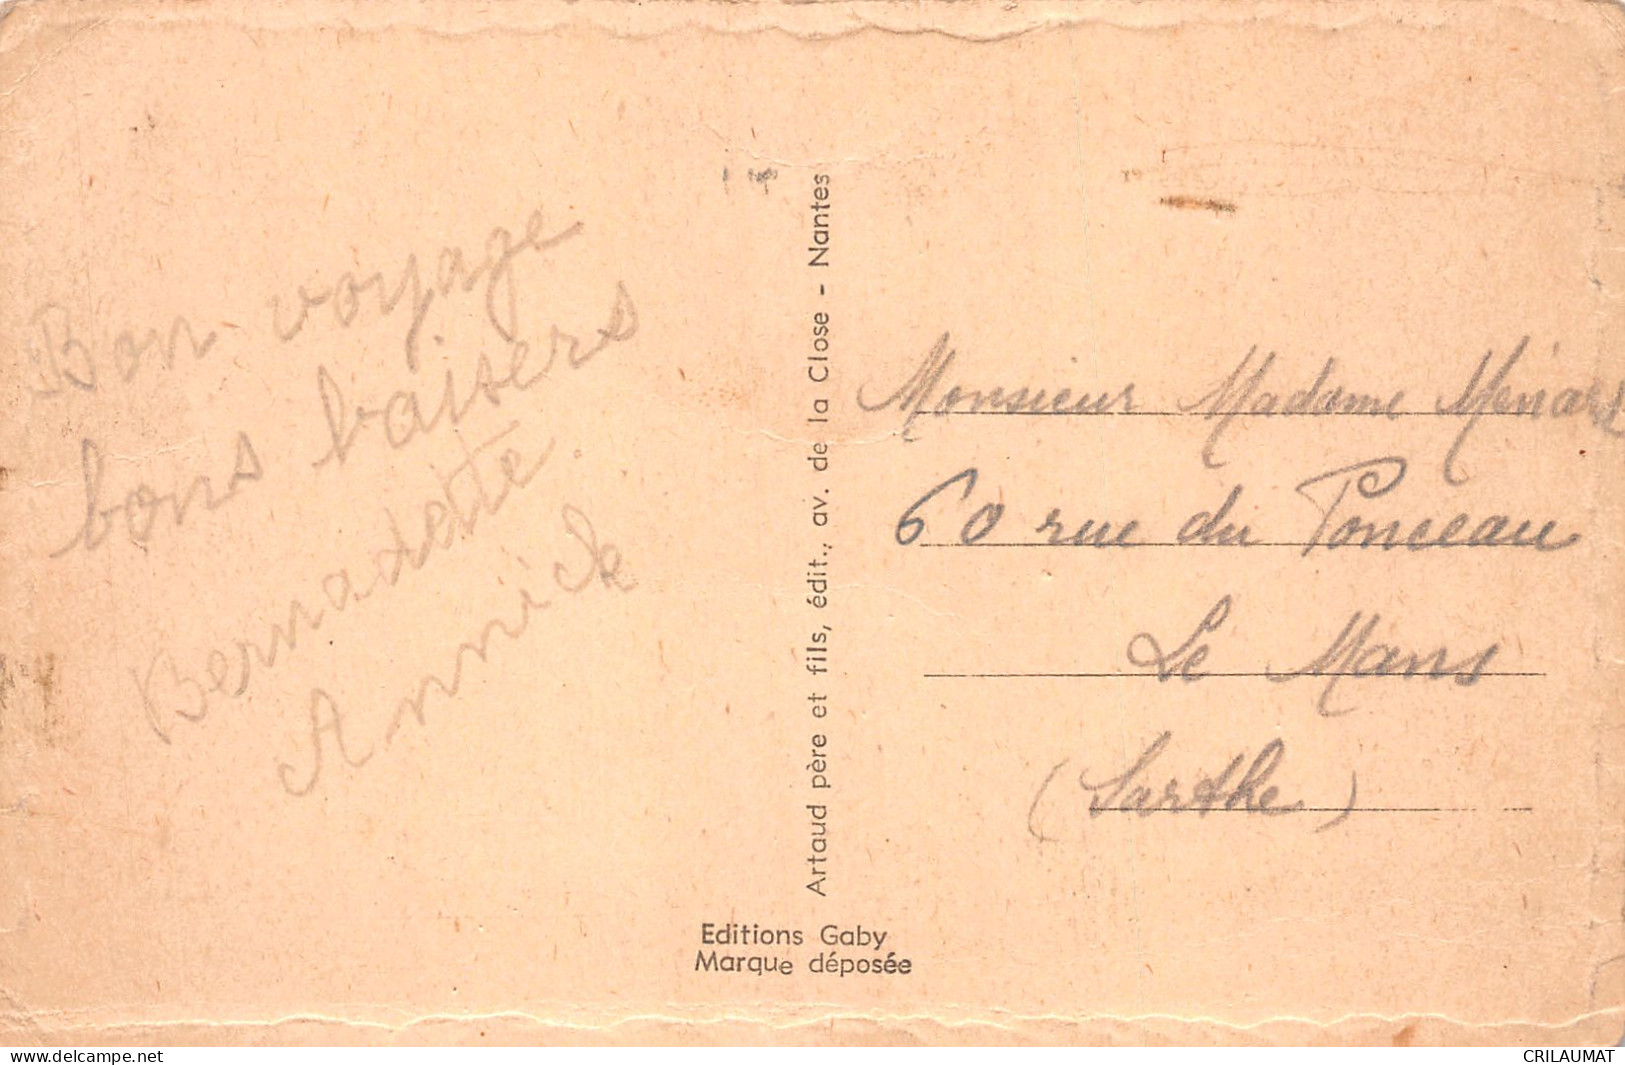 Bon voyage
bons baisers
Bernadette
Annick
Artaud père et fils, édit., av. de la Close - Nantes
Editions Gaby
Marque déposée
Monsieur Madame Ménard
60 rue du Ponceau
Le Mans
(Sarthe)
www.delcampe.net
CRILAUMAT